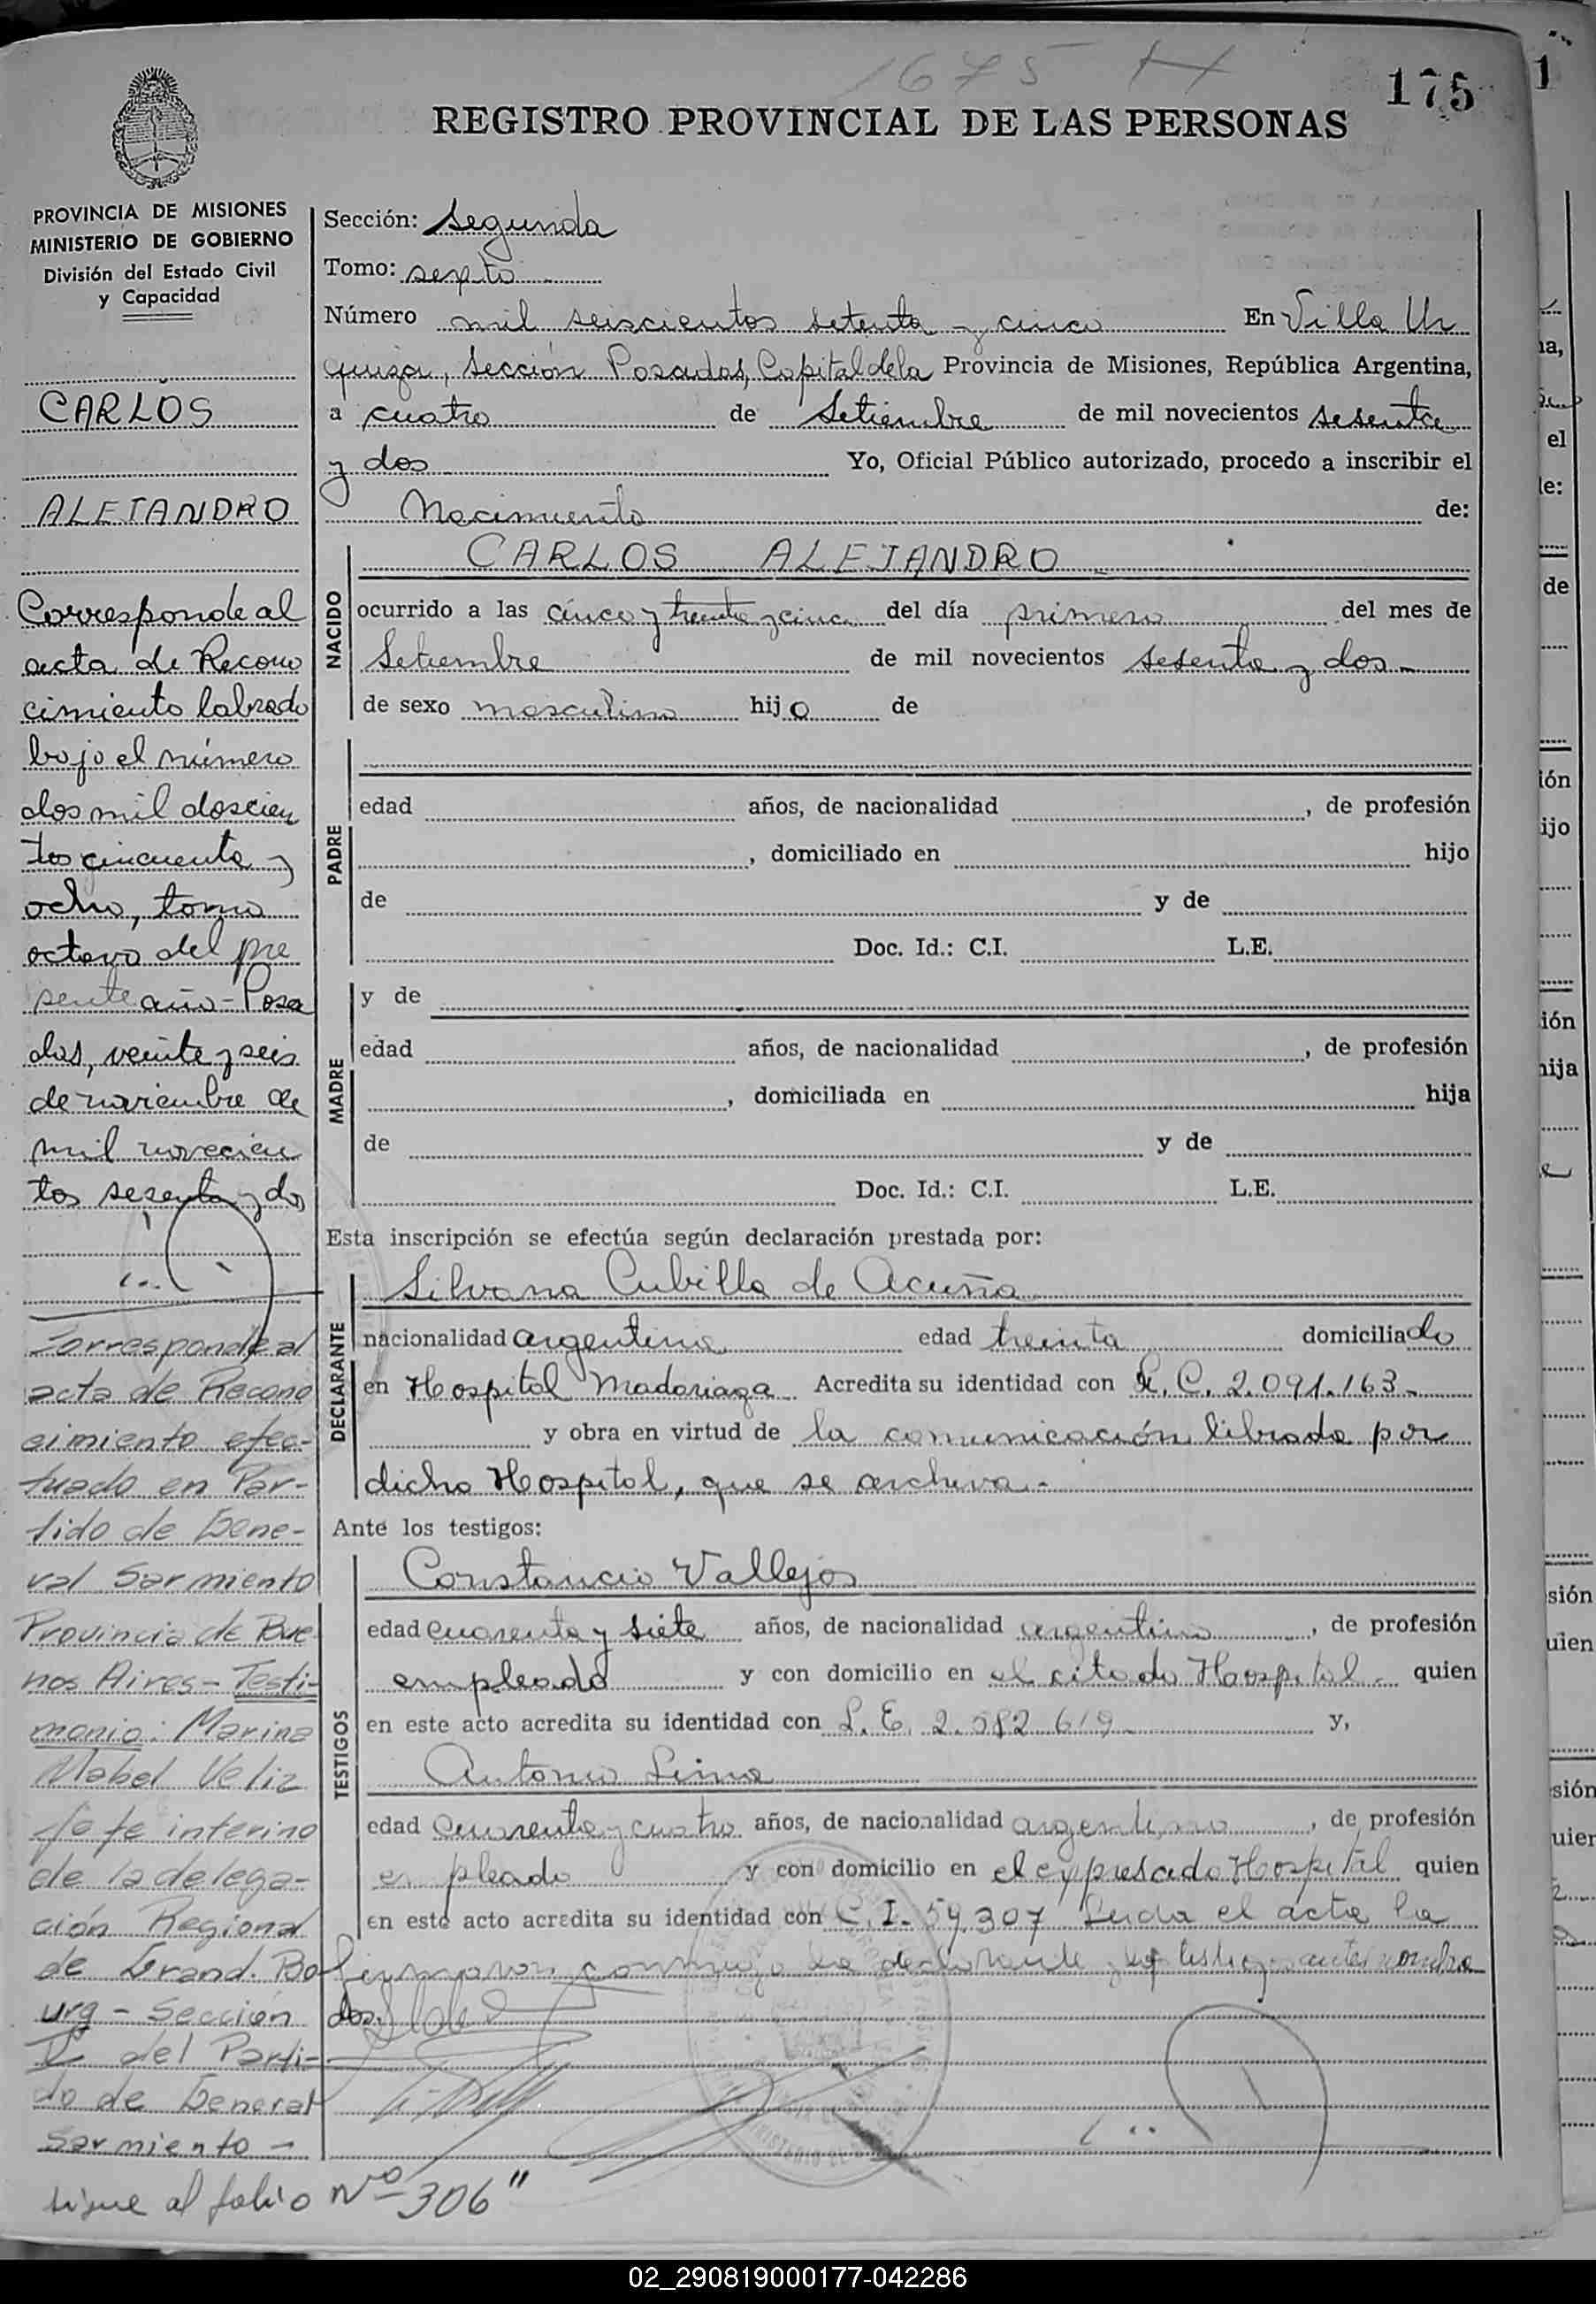 1675
175
1
REGISTRO PROVINCIAL DE LAS PERSONAS
PROVINCIA DE MISIONES
MINISTERIO DE GOBIERNO
División del Estado Civil
y Capacidad
CARLOS
ALEJANDRO
Corresponde al
acta de Recono
cimiento labrado
bajo el número
dos mil doscien
tos cincuenta y
ocho, tomo
octavo del pre
sente año - Posa
das, veinte y seis
de noviembre de
mil novecien
tos sesenta y dos
Corresponde al
acta de Recono
cimiento efec-
tuado en Par-
tido de Gene-
ral Sarmiento
Provincia de Bue
nos Aires - Testi-
monio: Marina
Mabel Veliz
Jefe interino
de la delega-
ción Regional
de Grand. Bo
urg - Sección
del Parti-
do de General
Sarmiento -
sigue al folio Nº 306"
Sección: Segunda
Tomo: sexto
Número mil seiscientos setenta y cinco En Villa Ur
quiza, Sección Posadas, Capital de la Provincia de Misiones, República Argentina,
a cuatro de Setiembre de mil novecientos sesenta
y dos Yo, Oficial Público autorizado, procedo a inscribir el
Nacimiento de:
NACIDO
CARLOS ALEJANDRO
ocurrido a las cinco y treinta y cinco del día primero del mes de
Setiembre de mil novecientos sesenta y dos -
de sexo masculino hijo de
PADRE
edad años, de nacionalidad , de profesión
, domiciliado en hijo
de y de
Doc. Id.: C.I. L.E.
MADRE
y de
edad años, de nacionalidad , de profesión
, domiciliada en hija
de y de
Doc. Id.: C.I. L.E.
Esta inscripción se efectúa según declaración prestada por:
DECLARANTE
Silvana Cubilla de Acuña
nacionalidad argentina edad treinta domiciliado
en Hospital Madariaga Acredita su identidad con L.C. 2.091.163-
y obra en virtud de la comunicación librada por
dicho Hospital, que se archiva.-
Ante los testigos:
TESTIGOS
Constancio Vallejos
edad cuarenta y siete años, de nacionalidad argentino, de profesión
empleado y con domicilio en el citado Hospital - quien
en este acto acredita su identidad con L.E. 2.582.619 y,
Antonio Lima
edad cuarenta y cuatro años, de nacionalidad argentino, de profesión
empleado y con domicilio en el expresado Hospital quien
en este acto acredita su identidad con C.I. 59.307 Leida el acta la
firmaron conmigo la declarante y los testigos antes nombra
dos.
02_290819000177-042286